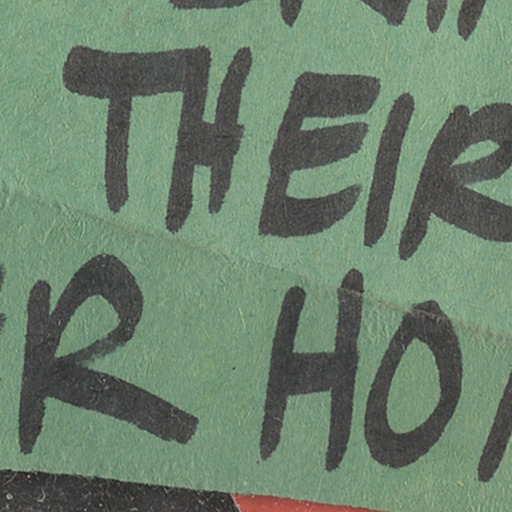 THEIR
R HO